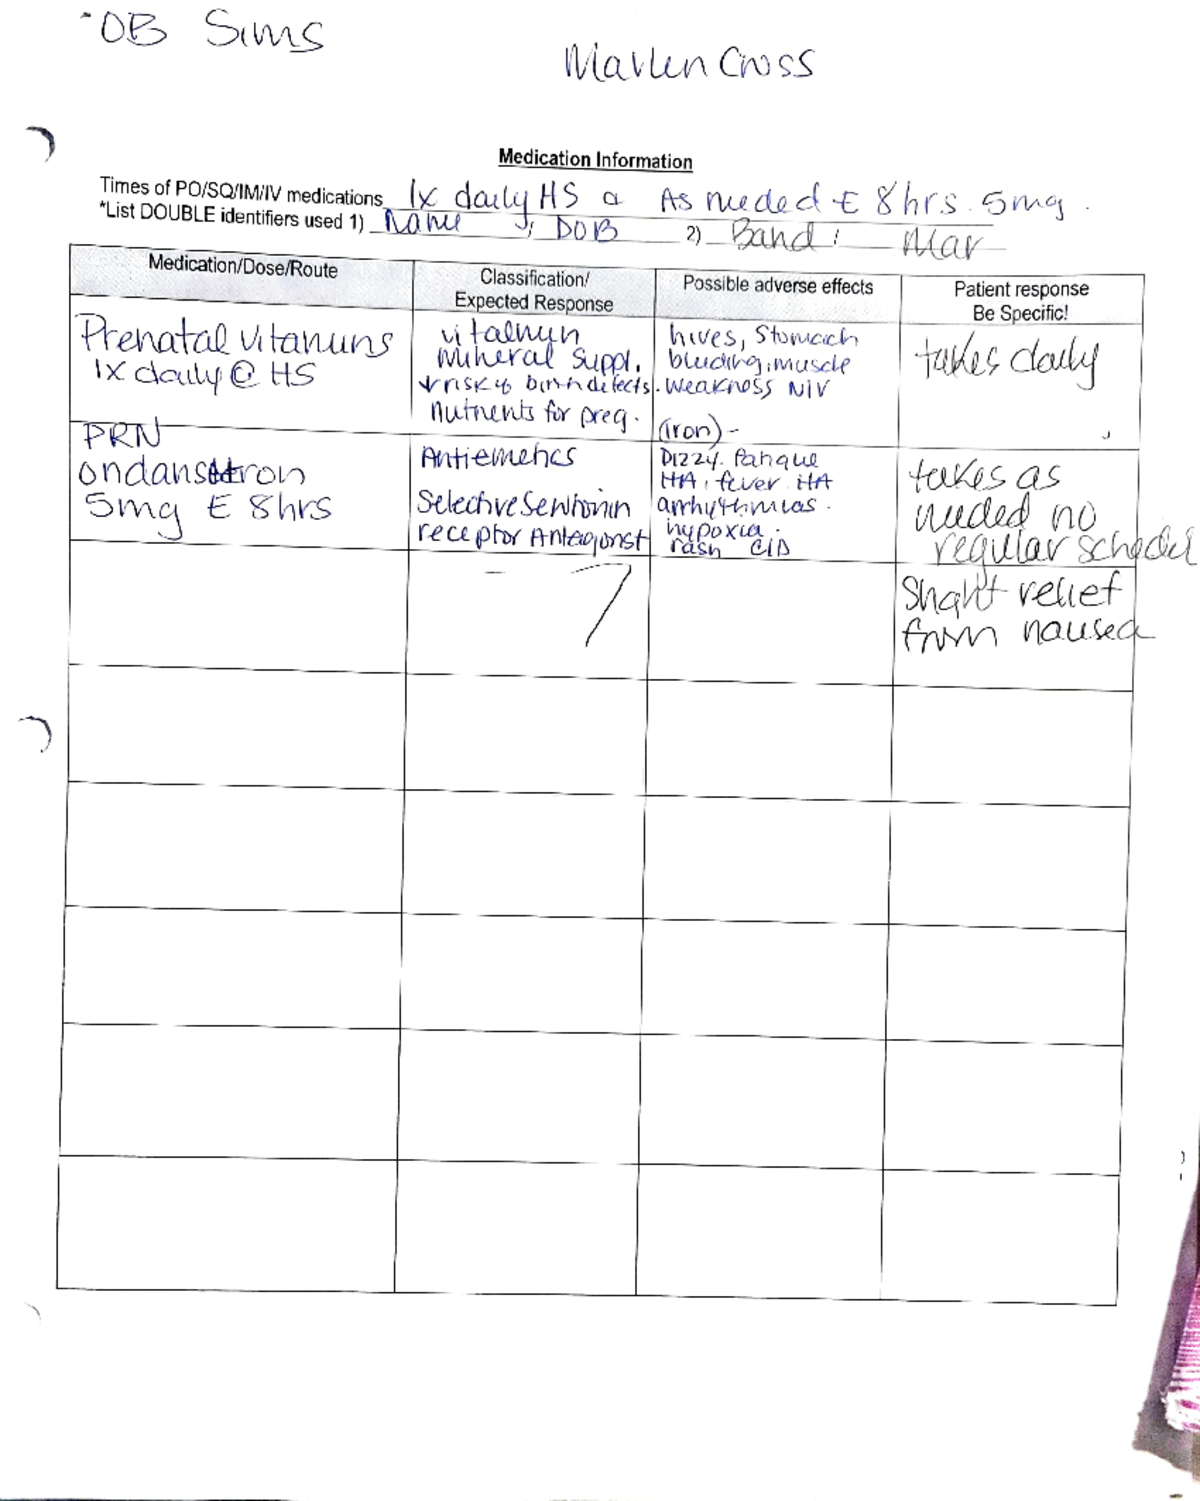 OB Sims
Marlen Cross
Medication Information
Times of PO/SQ/IM/IV medications 1x daily HS a As needed E 8 hrs. 5mg.
*List DOUBLE identifiers used 1) Name, DOB 2) Band: Mar
Medication/Dose/Route
Classification/
Expected Response
Possible adverse effects
Patient response
Be Specific!
Prenatal vitamins
1x daily @ HS
vitamin
mineral suppl.
↓ risk of birth defects.
nutrients for preg.
hives, stomach
bleeding, muscle
weakness N/V
(iron) -
takes daily
PRN
ondansetron
5mg E 8hrs
Antiemetics
Selective Serotonin
receptor Antagonist
Dizzy. Fatigue
HA, fever HA
arrhythmias.
hypoxia.
rash C/D
takes as
needed no
regular schedel
Slight relief
from nausea